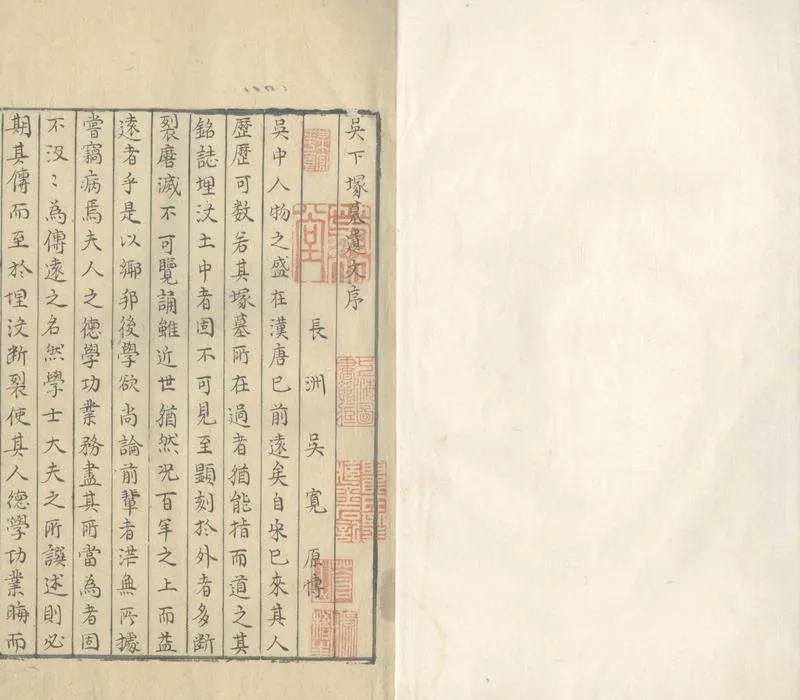 吳下塚墓遺文序
長洲吳寬原博
吳中人物之盛在漢唐已前遠矣自宋已來其人
歷歷可数若其塚墓所在過者猶能指而道之其
銘誌埋沒土中者固不可見至顯刻於外者多斷
裂磨滅不可覽誦雖近世猶然况百年之上而益
遠者乎是以鄉邦後學欲尚論前輩者茫無所據
嘗竊病焉夫人之德學功業務盡其所當為者固
不汲〻為傳遠之名然學士大夫之所譔述則必
期其傳而至於埋沒斷裂使其人德學功業晦而